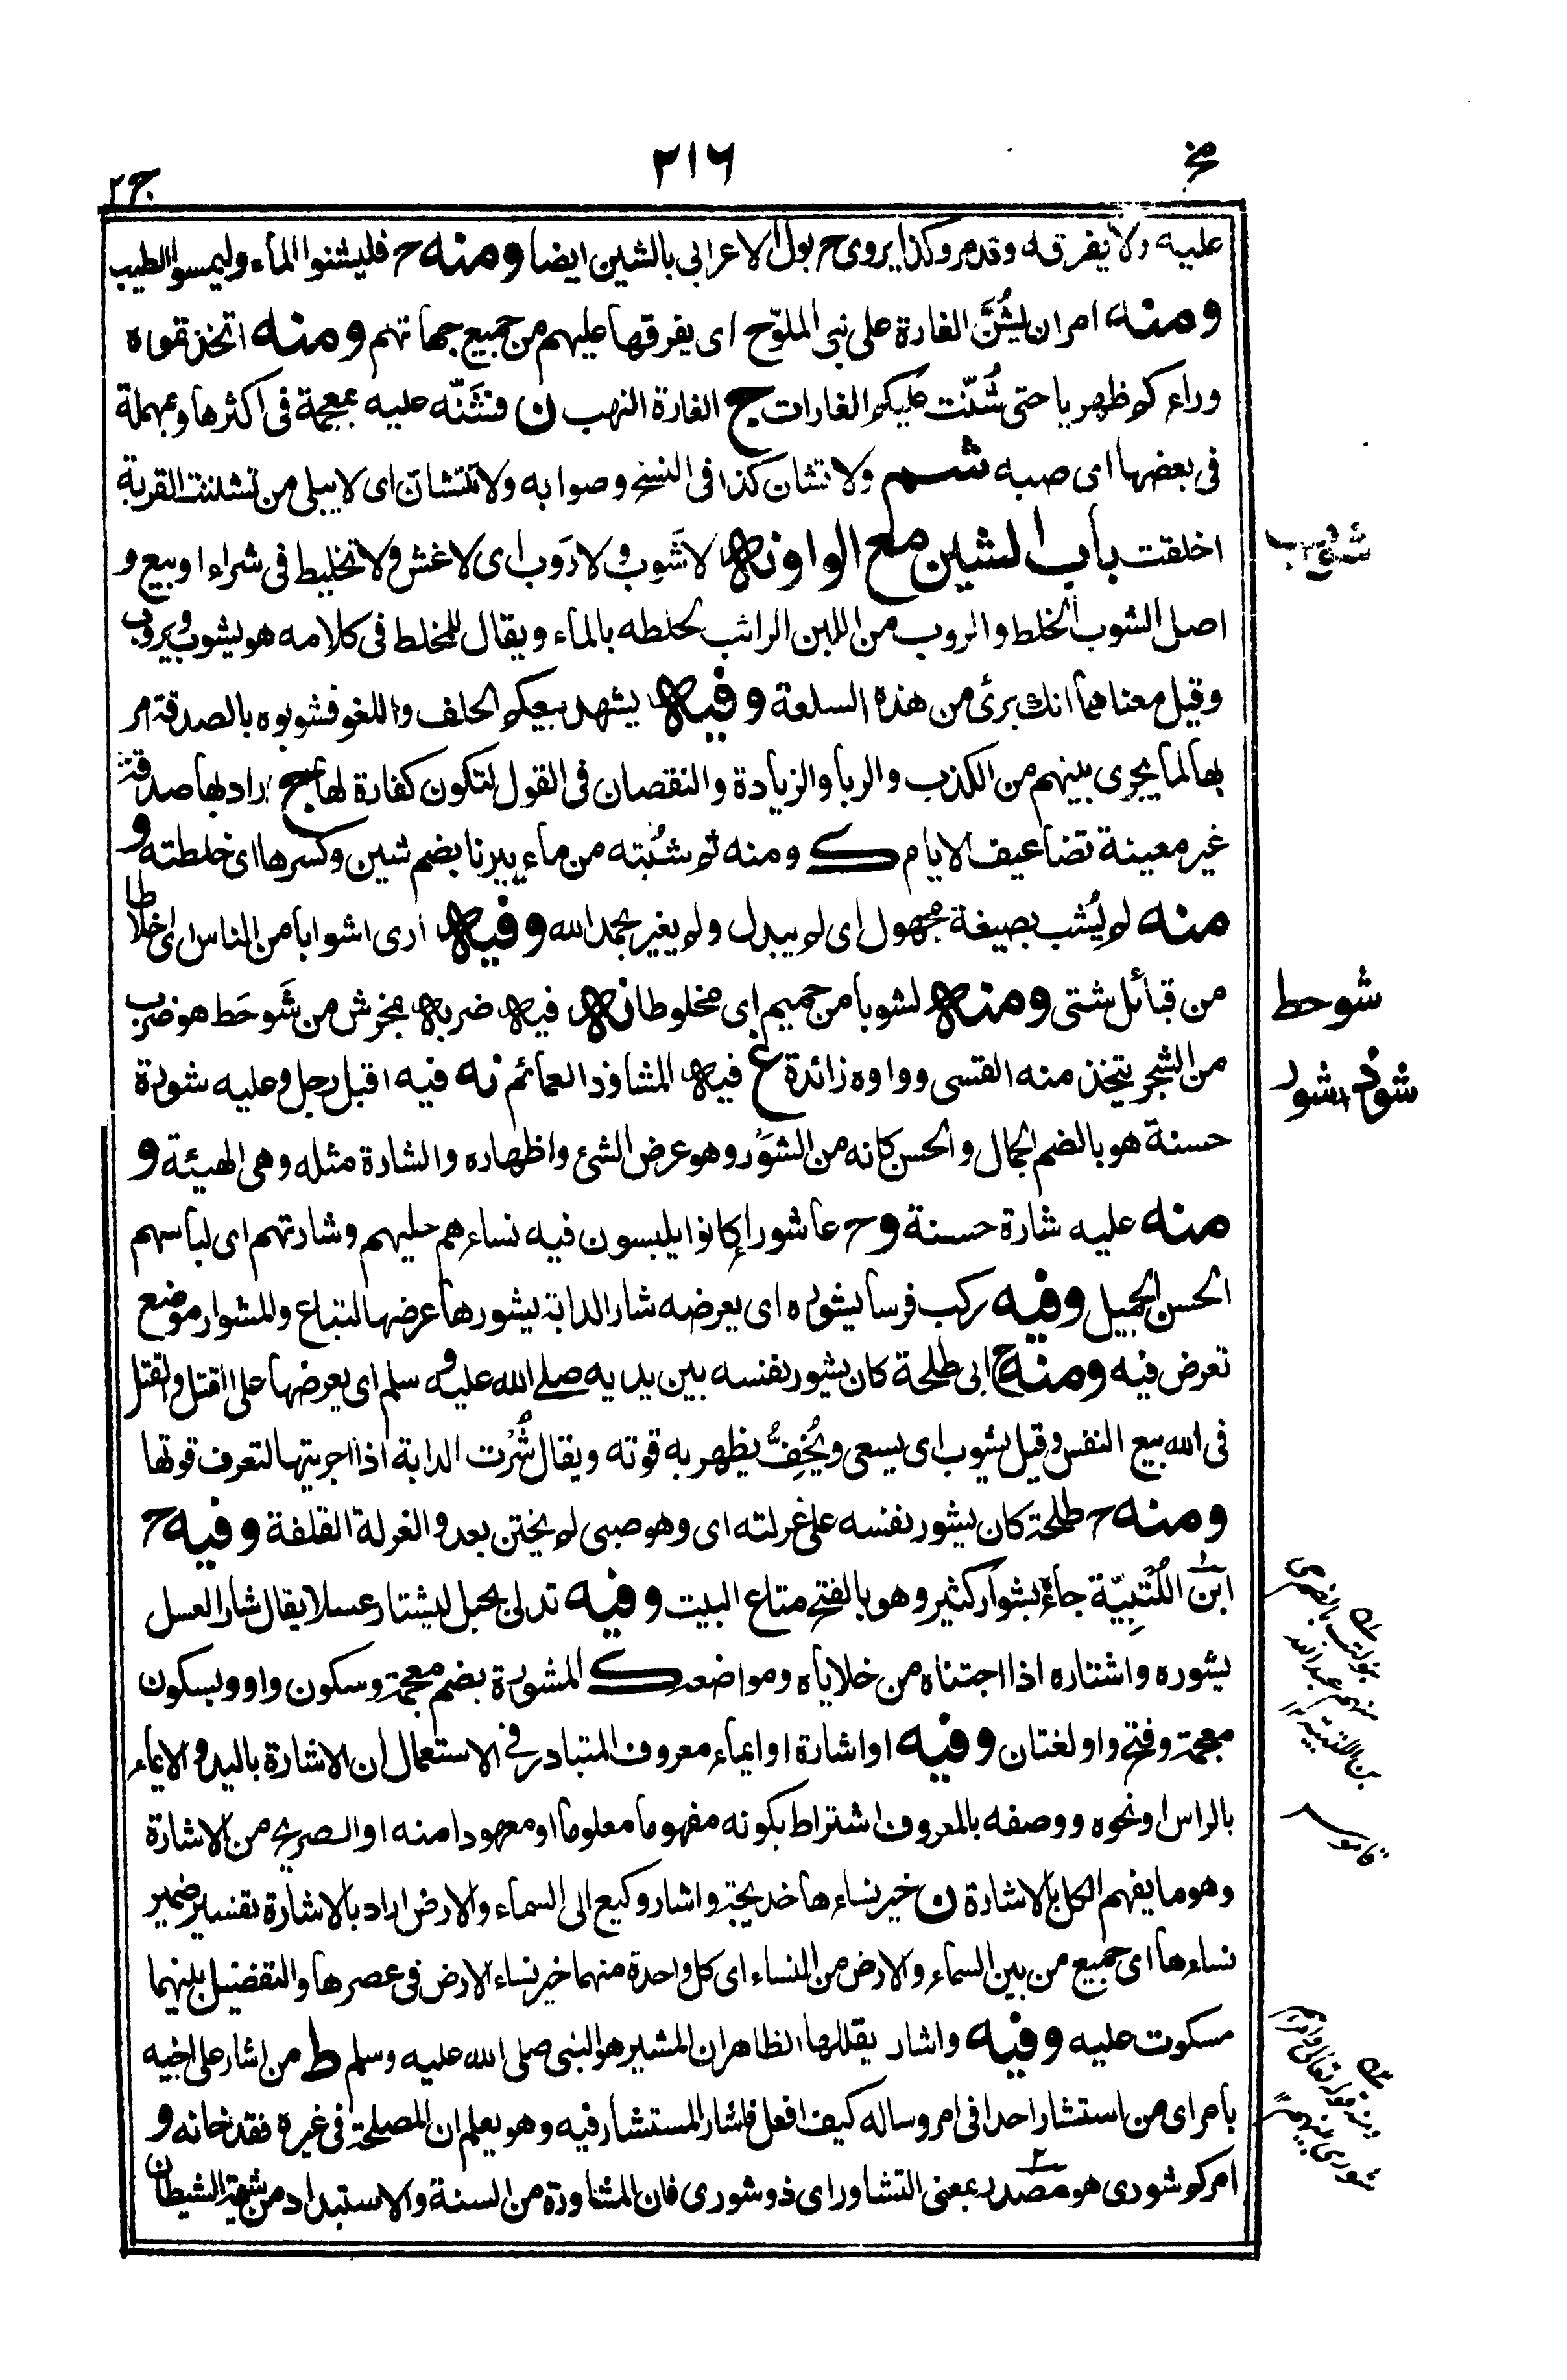 مخ
٢١٦
ج٢
عليه ولا يفرقه وقد مر وكذا يروى ح بول الاعرابي بالشين ايضا ومنه ح فليشنوا الماء وليمسوا الطيب
ومنه امر ان يشُنَّ الغارة على بني الملوّح اى يفرقها عليهم من جميع جهاتهم ومنه اتخذتموه
وراءكم ظهريا حتى شُنّت عليكم الغارات ج الغارة النهب ن فشَنّه عليه بمعجمة فى اكثرها وبمهملة
فى بعضها اى صبه شم ولا تشان كذا فى النسخ وصوابه ولا تتشان اى لا يبلى من تشننت القربة
اخلقت باب الشين مع الواو نه لا شَوب ولا رَوب اى لا غش ولا تخليط فى شراء او بيع و
شوب
اصل الشوب الخلط والروب من اللبن الرائب لخلطه بالماء ويقال للمخلط فى كلامه هو يشوب ويروب
وقيل معناهما انك برئ من هذه السلعة وفيه يشهد بيعكم الحلف واللغو فشوبوه بالصدقة امر
بها لما يجرى بينهم من الكذب والربا والزيادة والنقصان فى القول لتكون كفارة لها ج اراد بها صدقة
غير معينة تضاعيف الايام ك ومنه ثم شُبته من ماء بيرنا بضم شين وكسرها اى خلطته و
منه لم يُشب بصيغة مجهول اى لم يبدل ولم يغير بحمد الله وفيه ارى اشوابا من الناس اى اخلاطا
من قبائل شتى ومنه لشوبا من حميم اى مخلوطا نه فيه ضربه بمخرش من شَوحَط هو ضرب
شوحط
من الشجر يتخذ منه القسى وواوه زائدة غ فيه المشاوذ العمائم نه فيه اقبل رجل وعليه شورة
شوذ، شور
حسنة هو بالضم الجمال والحسن كانه من الشَوْر وهو عرض الشئ واظهاره والشارة مثله وهى الهيئة و
منه عليه شارة حسنة وح عاشورا كانوا يلبسون فيه نساءهم حليهم وشارتهم اى لباسهم
الحسن الجميل وفيه ركب فرسا يشوره اى يعرضه شار الدابة يشورها عرضها لتباع والمشوار موضع
تعرض فيه ومنه ح ابى طلحة كان يشور نفسه بين يديه صلى الله عليه وسلم اى يعرضها على القتل والقتل
فى الله بيع النفس وقيل يشوب اى يسعى ويُخِفُّ يظهر به قوته ويقال شُرْت الدابة اذا اجريتها لتعرف قوتها
ومنه ح طلحة كان يشور نفسه على غرلته اى وهو صبى لم يختن بعد والغرلة القلفة وفيه ح
ابن اللُّتبِيّة جاء بشوار كثير وهو بالفتح متاع البيت وفيه تدلى بحبل ليشتار عسلا يقال شار العسل
يشوره واشتاره اذا اجتناه من خلاياه ومواضعه ك المشورة بضم معجمة وسكون واو وبسكون
معجمة وفتح واو لغتان وفيه او اشارة او ايماء معروف المتبادر فى الاستعمال ان الاشارة باليد والايماء
بالراس او نحوه ووصفه بالمعروف اشتراط بكونه مفهوما معلوما او معهودا منه او الصريح من الاشارة
وهو ما يفهم الكل بالاشارة ن خير نساءها خديجة واشار وكيع الى السماء والارض اراد بالاشارة تفسير ضمير
نساءها اى جميع من بين السماء والارض من النساء اى كل واحدة منهما خير نساء الارض فى عصرها والتفضيل بينهما
مسكوت عليه وفيه واشار يقللها الظاهر ان المشير هو النبى صلى الله عليه وسلم ط من اشار على اخيه
بامر اى من استشار احدا فى امر وساله كيف افعل فاشار المستشار فيه وهو يعلم ان المصلحة فى غيره فقد خانه و
امركم شورى هو مصدر بمعنى التشاور اى ذو شورى فان المشاورة من السنة والاستبداد من شيمة الشيطان